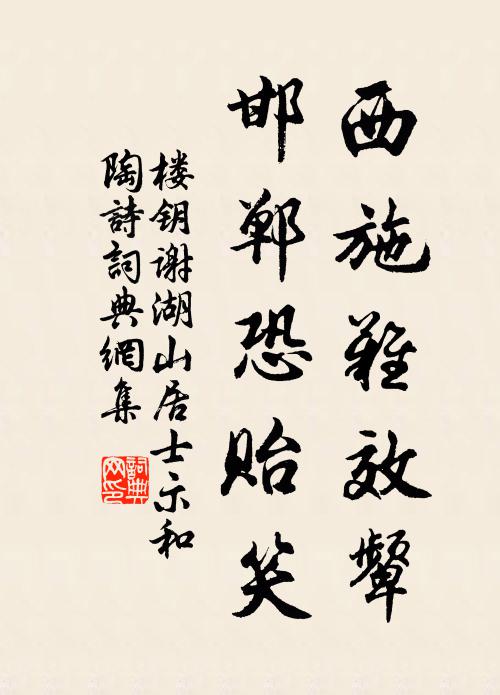 西施難效顰
邯鄲恐貽笑
楼钥谢湖山居士示和
陶詩詞典網集
詞典网印